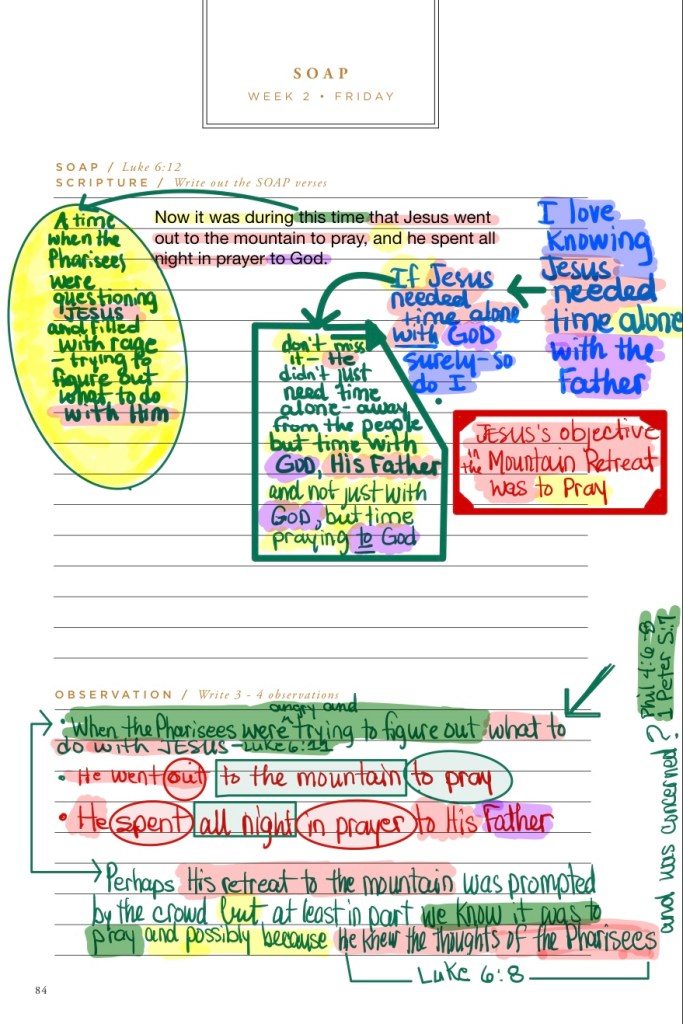 SOAP
WEEK 2 • FRIDAY
SOAP / Luke 6:12
SCRIPTURE / Write out the SOAP verses
Now it was during this time that Jesus went
out to the mountain to pray, and he spent all
night in prayer to God.
A time
when the
Pharisees
were
questioning
JESUS
and filled
with rage
- trying to
figure out
what to do
with Him
I love
knowing
Jesus
needed
time alone
with the
Father
If Jesus
needed
time alone
with GOD
surely-so
do I.
don't miss
it - He
didn't just
need time
alone - away
from the people
but time with
GOD, His Father
and not just with
GOD, but time
praying to God
JESUS's objective
in the Mountain Retreat
was to Pray
OBSERVATION / Write 3 - 4 observations
• When the Pharisees were ^ angry and trying to figure out what to
do with JESUS - Luke 6:11
• He went out to the mountain to pray
• He spent all night in prayer to His Father
Perhaps His retreat to the mountain was prompted
by the crowd but, at least in part we know it was to
pray and possibly because he knew the thoughts of the Pharisees
Luke 6:8
and was concerned?
Phil 4:6-8
1 Peter 5:7
84